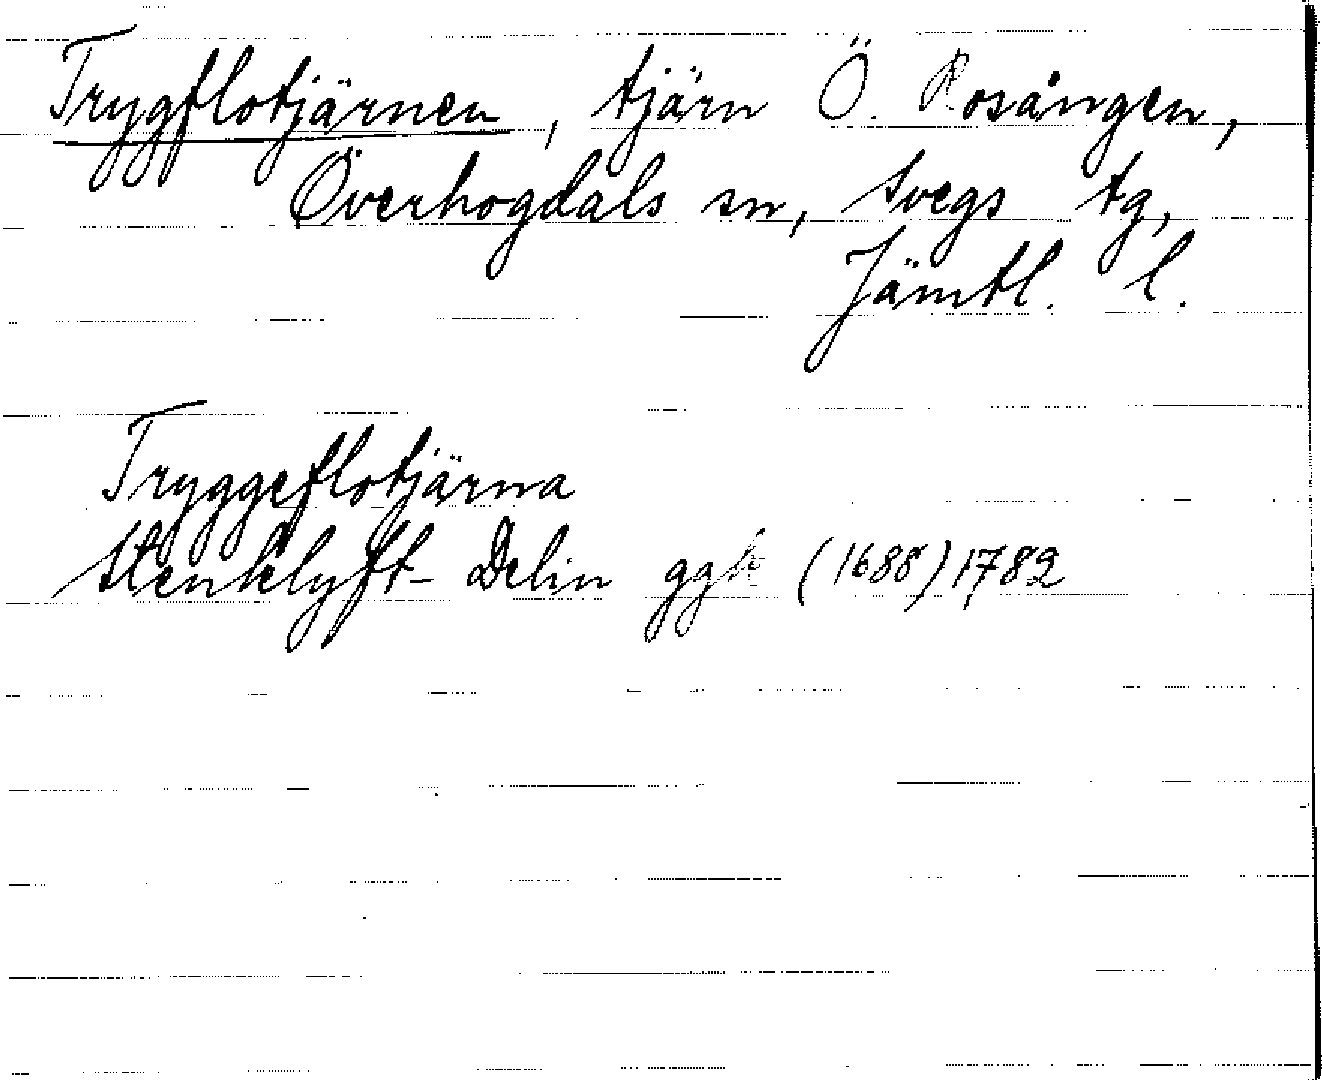 Tryggflotjärnen, tjärn Ö. Rosången,
Överhogdals sn, Svegs tg,
Jämtl. l.
Tryggeflotjärna
Stenklyft- Delin ggk (1688) 1782